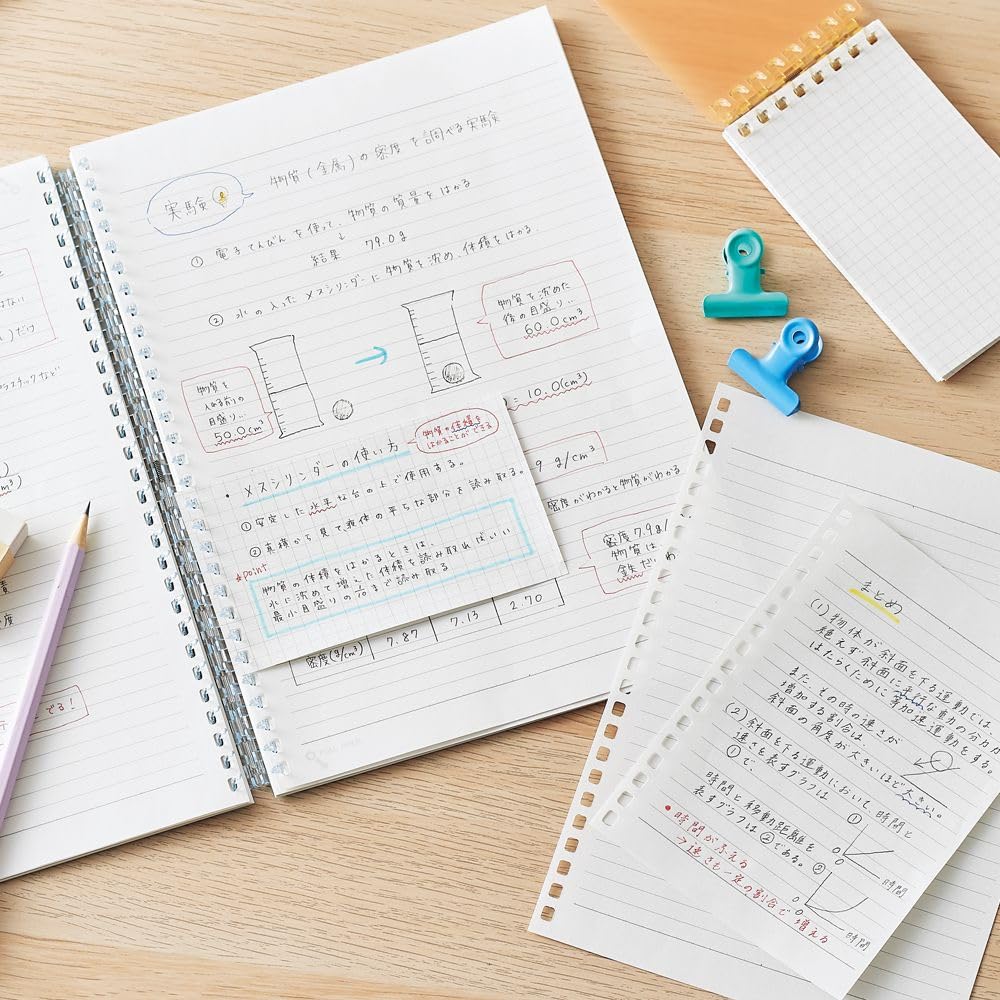 はない
)だけ
ラスチックなど
でる!
実験
物質(金属)の密度を調べる実験
① 電子てんびんを使って、物質の質量をはかる
↓
結果 79.0g
② 水の入ったメスシリンダーに物質を沈め、体積をはかる.
物質を
入れる前の
目盛り…
50.0cm³
→
物質を沈めた
後の目盛り…
60.0cm³
= 10.0(cm³)
9 g/cm³
密度がわかると物質がわかる
密度7.9g/
物質は
金失だ
・メスシリンダーの使い方
物質の体積を
はかることができる
①安定した水平な台の上で使用する。
②真横から見て液体の平らな部分を読み取る。
*point
物質の体積をはかるときは、
水に沈めて増した体積を読み取ればいい
最小目盛りの1/10まで読み取る
密度(g/cm³) 7.87 7.13 2.70
まとめ
(1)物体が斜面を下る運動では
絶えず斜面に平行な重力の分力が
はたらくために等加速運動をする。
また その時の速さが
増加する割合は、
斜面の角度が大きいほど大きい。
(2)斜面を下る運動において、時間と
速さを表すグラフは
①で、
時間と移動距離を
表すグラフは②である。
①
0
時間
②
0
時間
・時間がふえる
→速さも一定の割合で増える